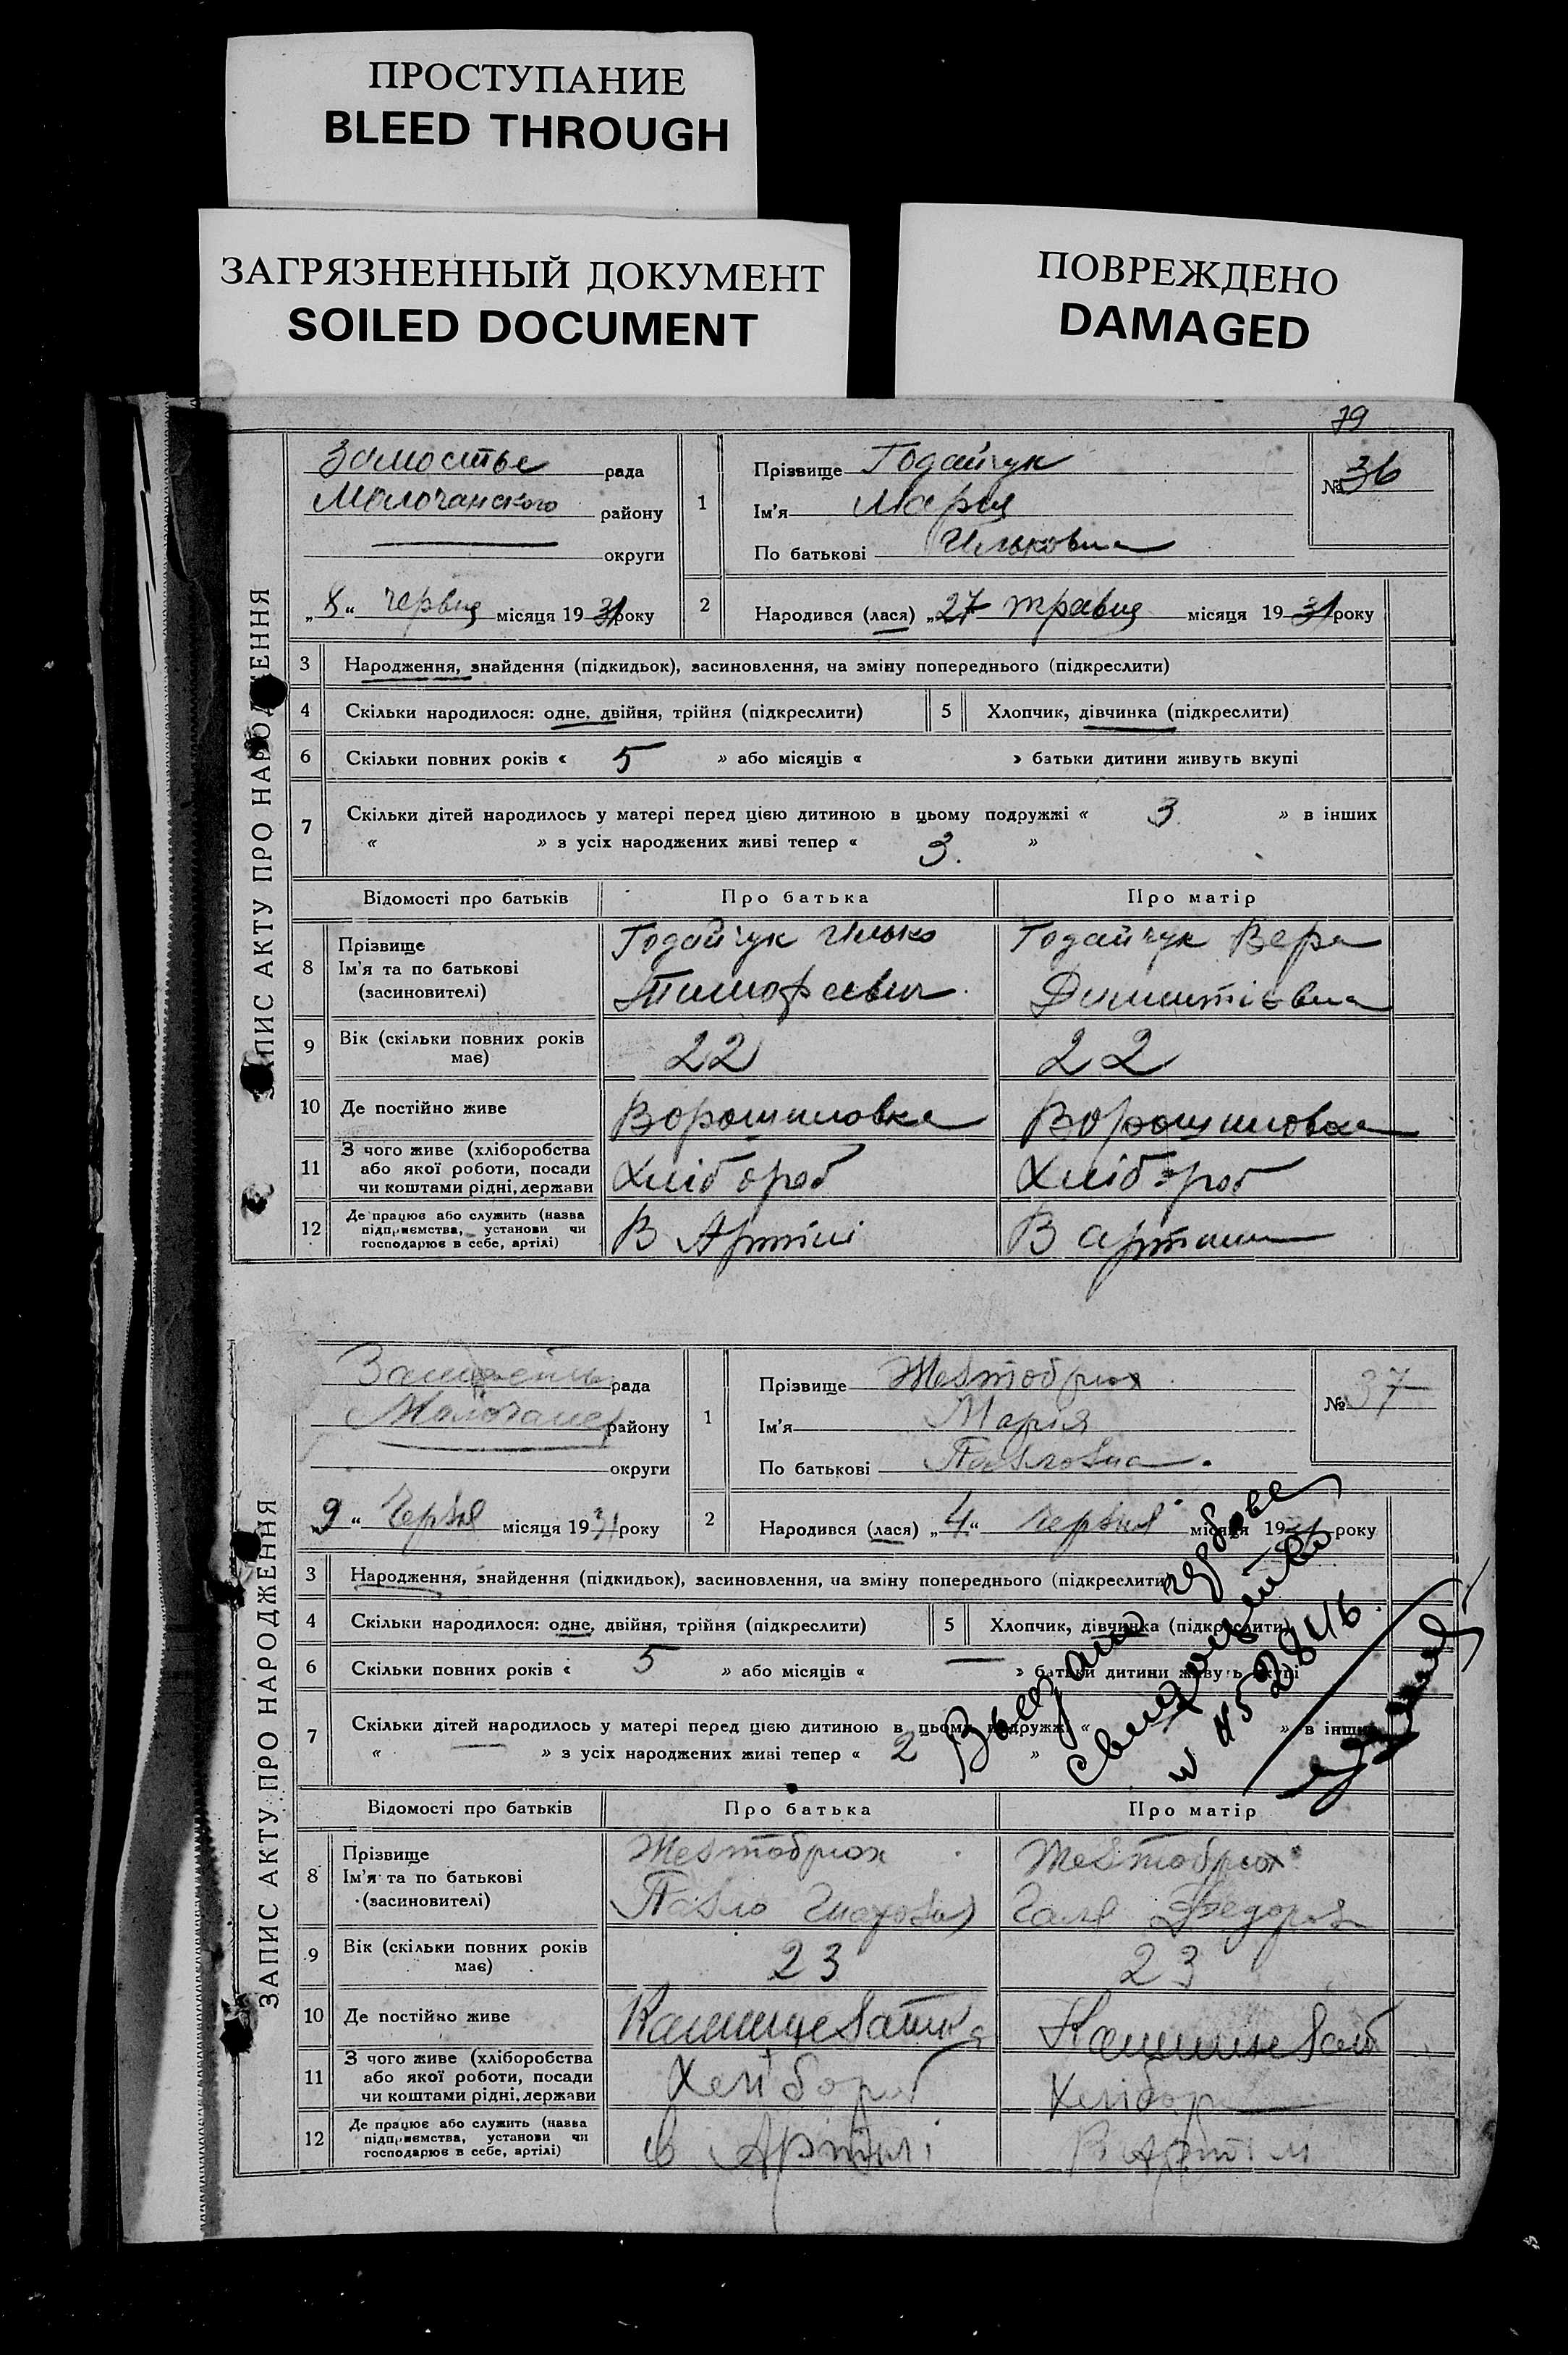 ПРОСТУПАНИЕ
BLEED THROUGH
ЗАГРЯЗНЕННЫЙ ДОКУМЕНТ
SOILED DOCUMENT
ПОВРЕЖДЕНО
DAMAGED
79
ЗАПИС АКТУ ПРО НАРОДЖЕННЯ
Замостье рада
Молочанского району
округи
„8“ червця місяця 1931 року
1 Прізвище Годайчук
Ім'я Мария
По батькові Ильковна
№ 36
2 Народився (лася) „27“ травця місяця 1931 року
3 Народження, знайдення (підкидьок), засиновлення, на зміну попереднього (підкреслити)
4 Скільки народилося: одне, двійня, трійня (підкреслити) 5 Хлопчик, дівчинка (підкреслити)
6 Скільки повних років « 5 » або місяців « » батьки дитини живуть вкупі
7 Скільки дітей народилось у матері перед цією дитиною в цьому подружжі « 3 » в інших
« » з усіх народжених живі тепер « 3. »
Відомості про батьків Про батька Про матір
8 Прізвище
Ім'я та по батькові
(засиновителі)
Годайчук Илько
Тимофеевич
Годайчук Вера
9 Вік (скільки повних років
має)
22 22
10 Де постійно живе Ворошиловка Ворошиловка
11 З чого живе (хліборобства
або якої роботи, посади
чи коштами рідні, держави
Хлібороб Хлібороб
12 Де працює або служить (назва
підприємства, установи чи
господарює в себе, артілі)
В Артілі В артили
ЗАПИС АКТУ ПРО НАРОДЖЕННЯ
рада
району
округи
„9“ Червня місяця 1931 року
1 Прізвище Жевтобрюх
Ім'я Марія
По батькові Павловна.
№ 37
2 Народився (лася) „4“ Червня місяця 1931 року
3 Народження, знайдення (підкидьок), засиновлення, на зміну попереднього (підкреслити)
4 Скільки народилося: одне, двійня, трійня (підкреслити) 5 Хлопчик, дівчинка (підкреслити)
6 Скільки повних років « 5 » або місяців « — » батьки дитини живуть вкупі
7 Скільки дітей народилось у матері перед цією дитиною в цьому подружжі « » в інших
« » з усіх народжених живі тепер « 2 »
Відомості про батьків Про батька Про матір
8 Прізвище
Ім'я та по батькові
(засиновителі)
Жевтобрюх
Павло
Жевтобрюх
Галя
9 Вік (скільки повних років
має)
23 23
10 Де постійно живе
11 З чого живе (хліборобства
або якої роботи, посади
чи коштами рідні, держави
Хлібороб
12 Де працює або служить (назва
підприємства, установи чи
господарює в себе, артілі)
в Артілі В Артілі